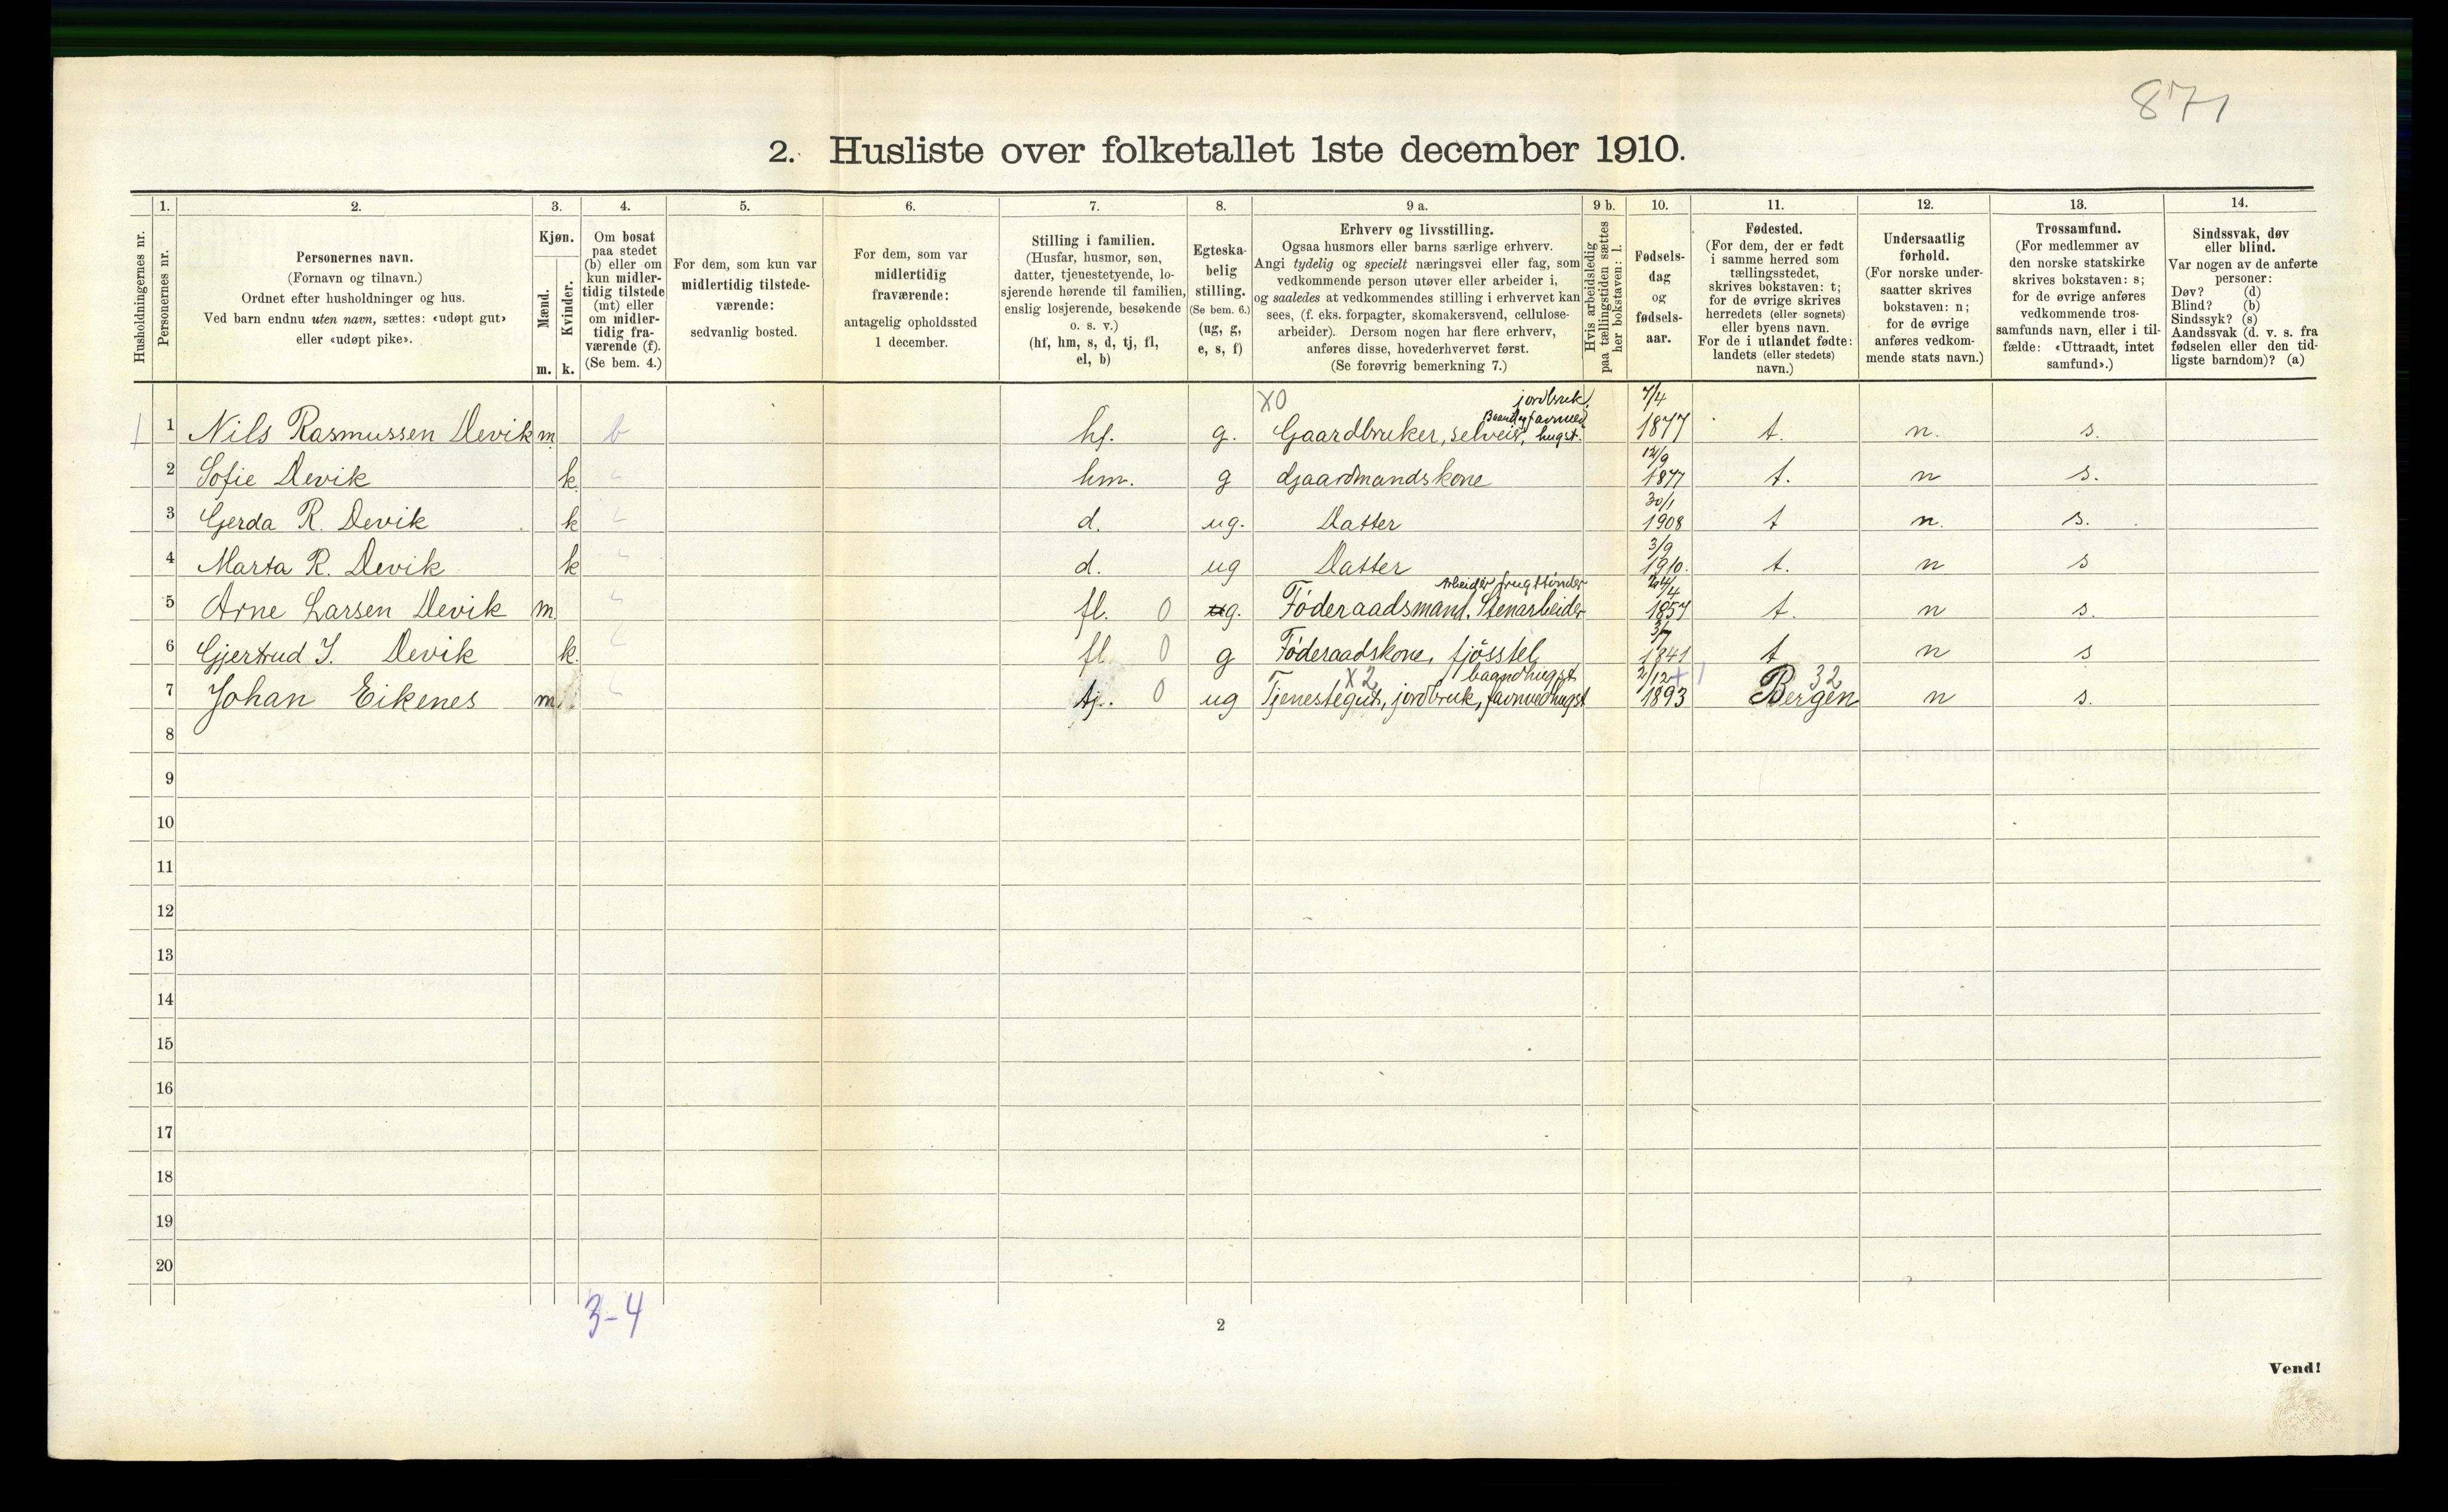 871
2. Husliste over folketallet 1ste december 1910.
Husholdningernes nr.
1.
Personernes nr.
2.
Personernes navn.
(Fornavn og tilnavn.)
Ordnet efter husholdninger og hus.
Ved barn endnu uten navn, sættes: «udøpt gut»
eller «udøpt pike».
3.
Kjøn.
Mænd.
Kvinder.
m. k.
4.
Om bosat
paa stedet
(b) eller om
kun midler-
tidig tilstede
(mt) eller
om midler-
tidig fra-
værende (f).
(Se bem. 4.)
5.
For dem, som kun var
midlertidig tilstede-
værende:
sedvanlig bosted.
6.
For dem, som var
midlertidig
fraværende:
antagelig opholdssted
1 december.
7.
Stilling i familien.
(Husfar, husmor, søn,
datter, tjenestetyende, lo-
sjerende hørende til familien,
enslig losjerende, besøkende
o. s. v.)
(hf, hm, s, d, tj, fl,
el, b)
8.
Egteska-
belig
stilling.
(Se bem. 6.)
(ug, g,
e, s, f)
9 a.
Erhverv og livsstilling.
Ogsaa husmors eller barns særlige erhverv.
Angi tydelig og specielt næringsvei eller fag, som
vedkommende person utøver eller arbeider i,
og saaledes at vedkommendes stilling i erhvervet kan
sees, (f. eks. forpagter, skomakersvend, cellulose-
arbeider). Dersom nogen har flere erhverv,
anføres disse, hovederhvervet først.
(Se forøvrig bemerkning 7.)
9 b.
Hvis arbeidsledig
paa tællingstiden sættes
her bokstaven: l.
10.
Fødsels-
dag
og
fødsels-
aar.
11.
Fødested.
(For dem, der er født
i samme herred som
tællingsstedet,
skrives bokstaven: t;
for de øvrige skrives
herredets (eller sognets)
eller byens navn.
For de i utlandet fødte:
landets (eller stedets)
navn.)
12.
Undersaatlig
forhold.
(For norske under-
saatter skrives
bokstaven: n;
for de øvrige
anføres vedkom-
mende stats navn.)
13.
Trossamfund.
(For medlemmer av
den norske statskirke
skrives bokstaven: s;
for de øvrige anføres
vedkommende tros-
samfunds navn, eller i til-
fælde: «Uttraadt, intet
samfund».)
14.
Sindssvak, døv
eller blind.
Var nogen av de anførte
personer:
Døv? (d)
Blind? (b)
Sindssyk? (s)
Aandssvak (d. v. s. fra
fødselen eller den tid-
ligste barndom)? (a)
X0 jordbruk. 7/4
1 1 Nils Rasmussen Devik m b hf. g. Gaardbruker, selveir, hugst. 1877 t. n. s.
12/9
2 Sofie Devik k hm. g Gaardmandskone 1877 t. n s.
30/1
3 Gerda R. Devik k d. ug. Datter 1908 t n. s.
3/9
4 Marta R. Devik k d. ug Datter 1910. t. n s
Arbeider frugttønder 24/4
5 Arne Larsen Devik m fl. 0 g. Føderaadsmand. Stenarbeider 1857 t. n s.
3/7
6 Gjertrud I. Devik k. fl 0 g Føderaadskone, fjösstel 1841 t n s
X2 baandhugst 2/12 +1 32
7 Johan Eikenes m tj. 0 ug Tjenestegut, jordbruk, favnvedhugst 1893 Bergen n s.
8
9
10
11
12
13
14
15
16
17
18
19
20
3-4
2
Vend!